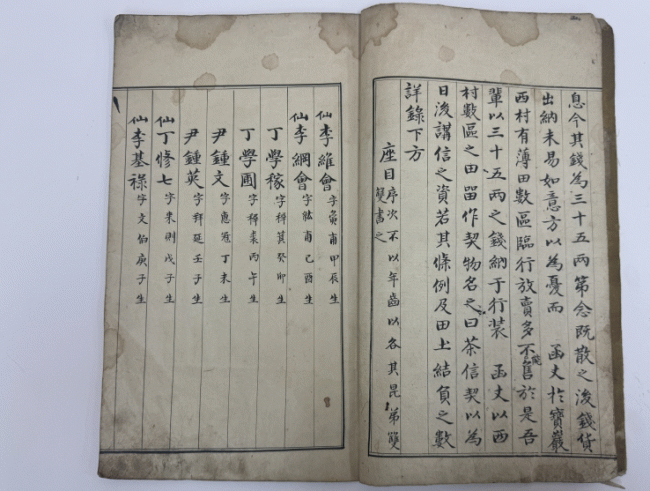 息今其錢為三十五兩第念既散之後錢貨
出納未易如意方以為憂而 函丈於寶巖
西村有薄田數區臨行放賣多不能售於是吾
輩以三十五兩之錢納于行装 函丈以西
村數區之田留作契物名之曰茶信契以為
日後講信之資若其條例及田土結負之數
詳錄下方
座目 序次不以年齒以各其昆弟雙雙書之
仙李維會 字寅甫甲辰生
仙李綱會 字紘甫己酉生
丁學稼 字穉箕癸卯生
丁學圃 字穉裘丙午生
尹鍾文 字惠冠丁未生
尹鍾英 字拜延壬子生
仙丁修七 字來則戊子生
仙李基祿 字文伯庚子生